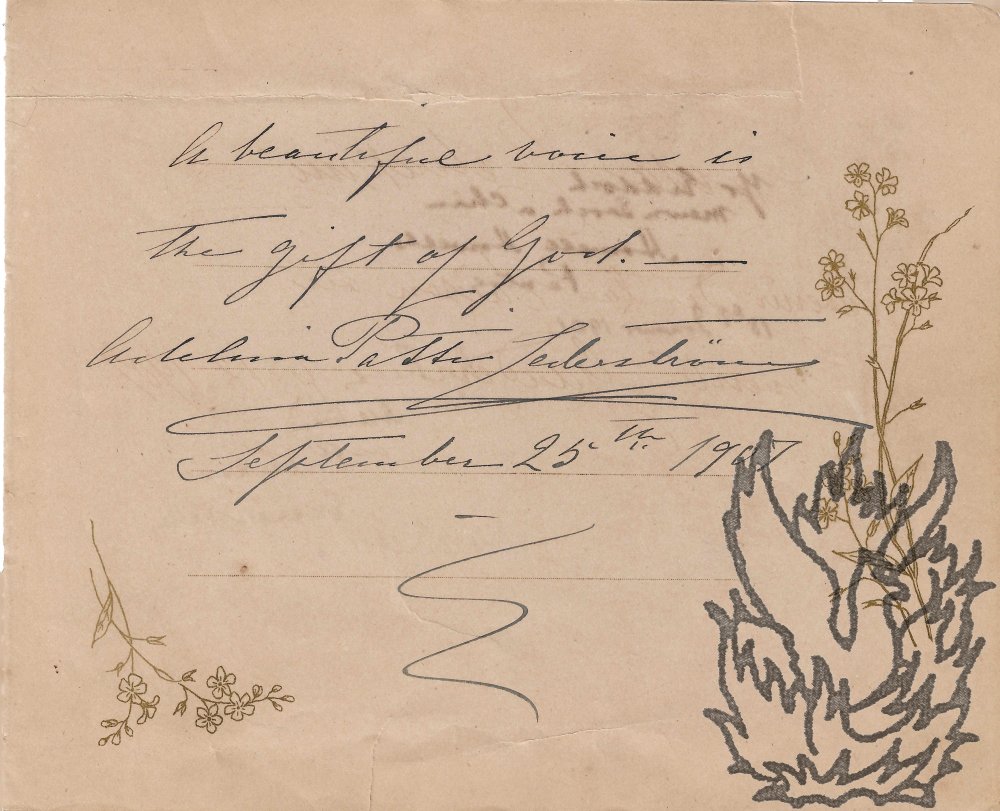 A beautiful voice is
the gift of God. —
Adelina Patti Cederström
September 25th 1907